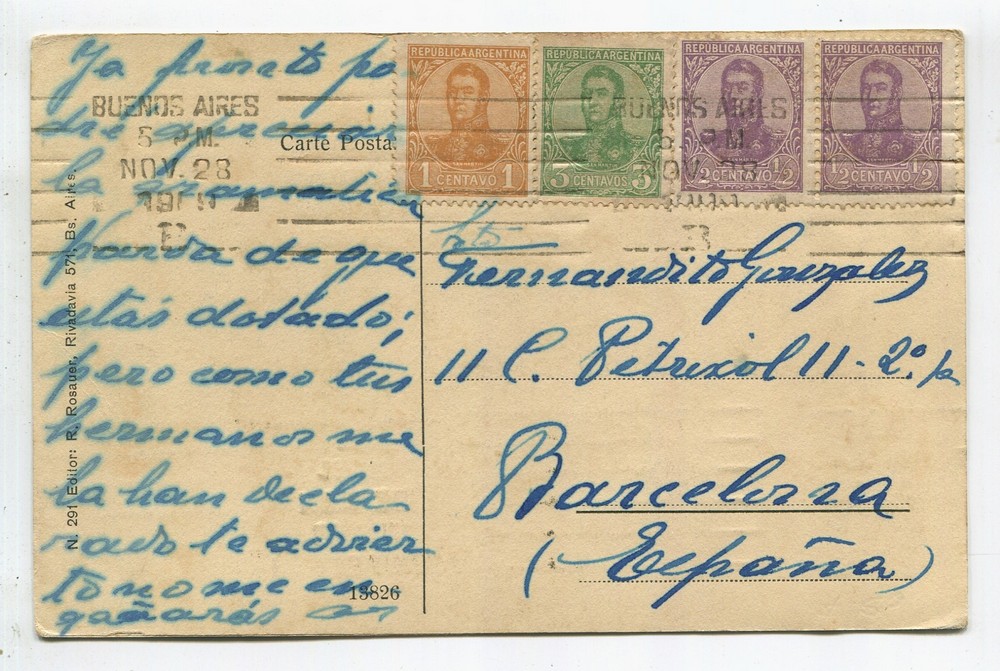 Ya pronto po
dré apreciar
la gramatica
Parda de que
estás dotado;
pero como tus
hermanos me
la han decla
rado te advier
to no me en
gañarás
BUENOS AIRES
5 P.M.
NOV. 28
B
Carte Postal
REPÚBLICA ARGENTINA
1 CENTAVO 1
REPÚBLICA ARGENTINA
3 CENTAVOS 3
REPÚBLICA ARGENTINA
½ CENTAVO ½
REPÚBLICA ARGENTINA
½ CENTAVO ½
BUENOS AIRES
P.M.
NOV. 28
B
Fernandito Gonzalez
11 C. Petrixol 11-2º. p
Barcelona
(España)
N. 291 Editor: R. Rosauer, Rivadavia 571, Bs. Aires.
13826